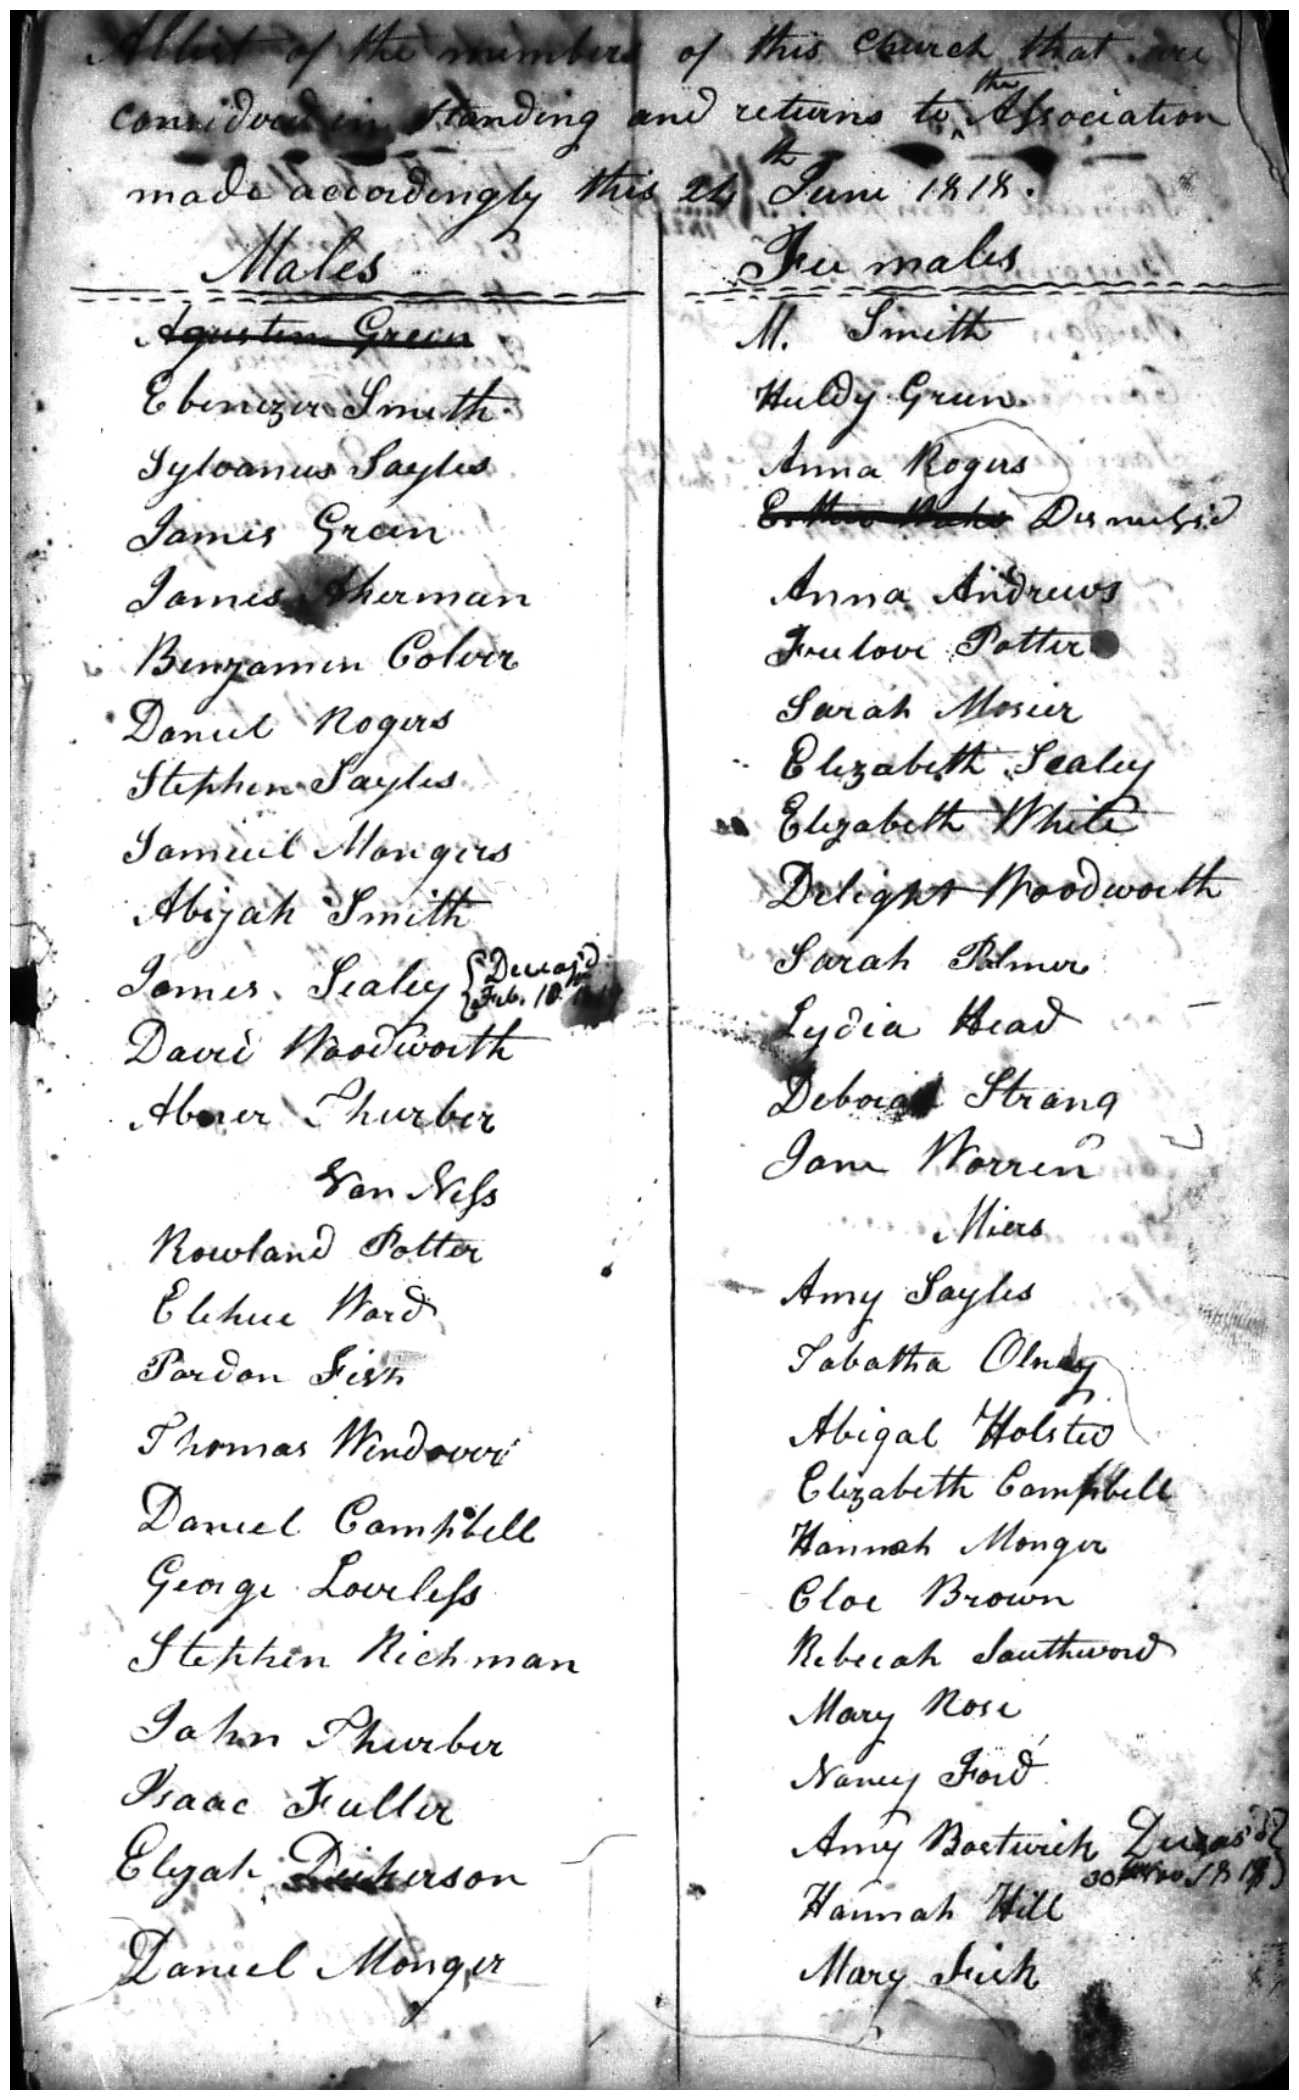 A list of the members of this Church that are
considered in standing and returns to the Association
made accordingly this th June 1818.
Males
Agustin Green
Ebenezer Smith
Sylvanus Sayles
James Green
James Sherman
Benjamin Colver
Daniel Rogers
Stephen Sayles
Samuel Mongers
Abijah Smith
James Sealey Deceas'd
Feb. 10
David Woodworth
Abner Thurber
Van Ness
Rowland Potter
Elehue Ward
Pardon Fish
Thomas Windover
Daniel Campbell
George Loveless
Stephen Richman
John Thurber
Isaac Fuller
Elijah Dickerson
Daniel Monger
Fee males
M. Smith
Huldy Green
Anna Rogers
Dismissed
Anna Andrews
Freelove Potter
Sarah Mosier
Elizabeth Sealey
Elizabeth White
Delight Woodworth
Sarah Palmer
Lydia Head
Deborah Strang
Jane Warren
Miers
Amy Sayles
Tabatha Olney
Abigal Holsted
Elizabeth Campbell
Hannah Monger
Cloe Brown
Rebecah Southword
Mary Rose
Nancy Ford
Amy Bostwick Deceas'd
30 Nov 1818
Hannah Hill
Mary Fish